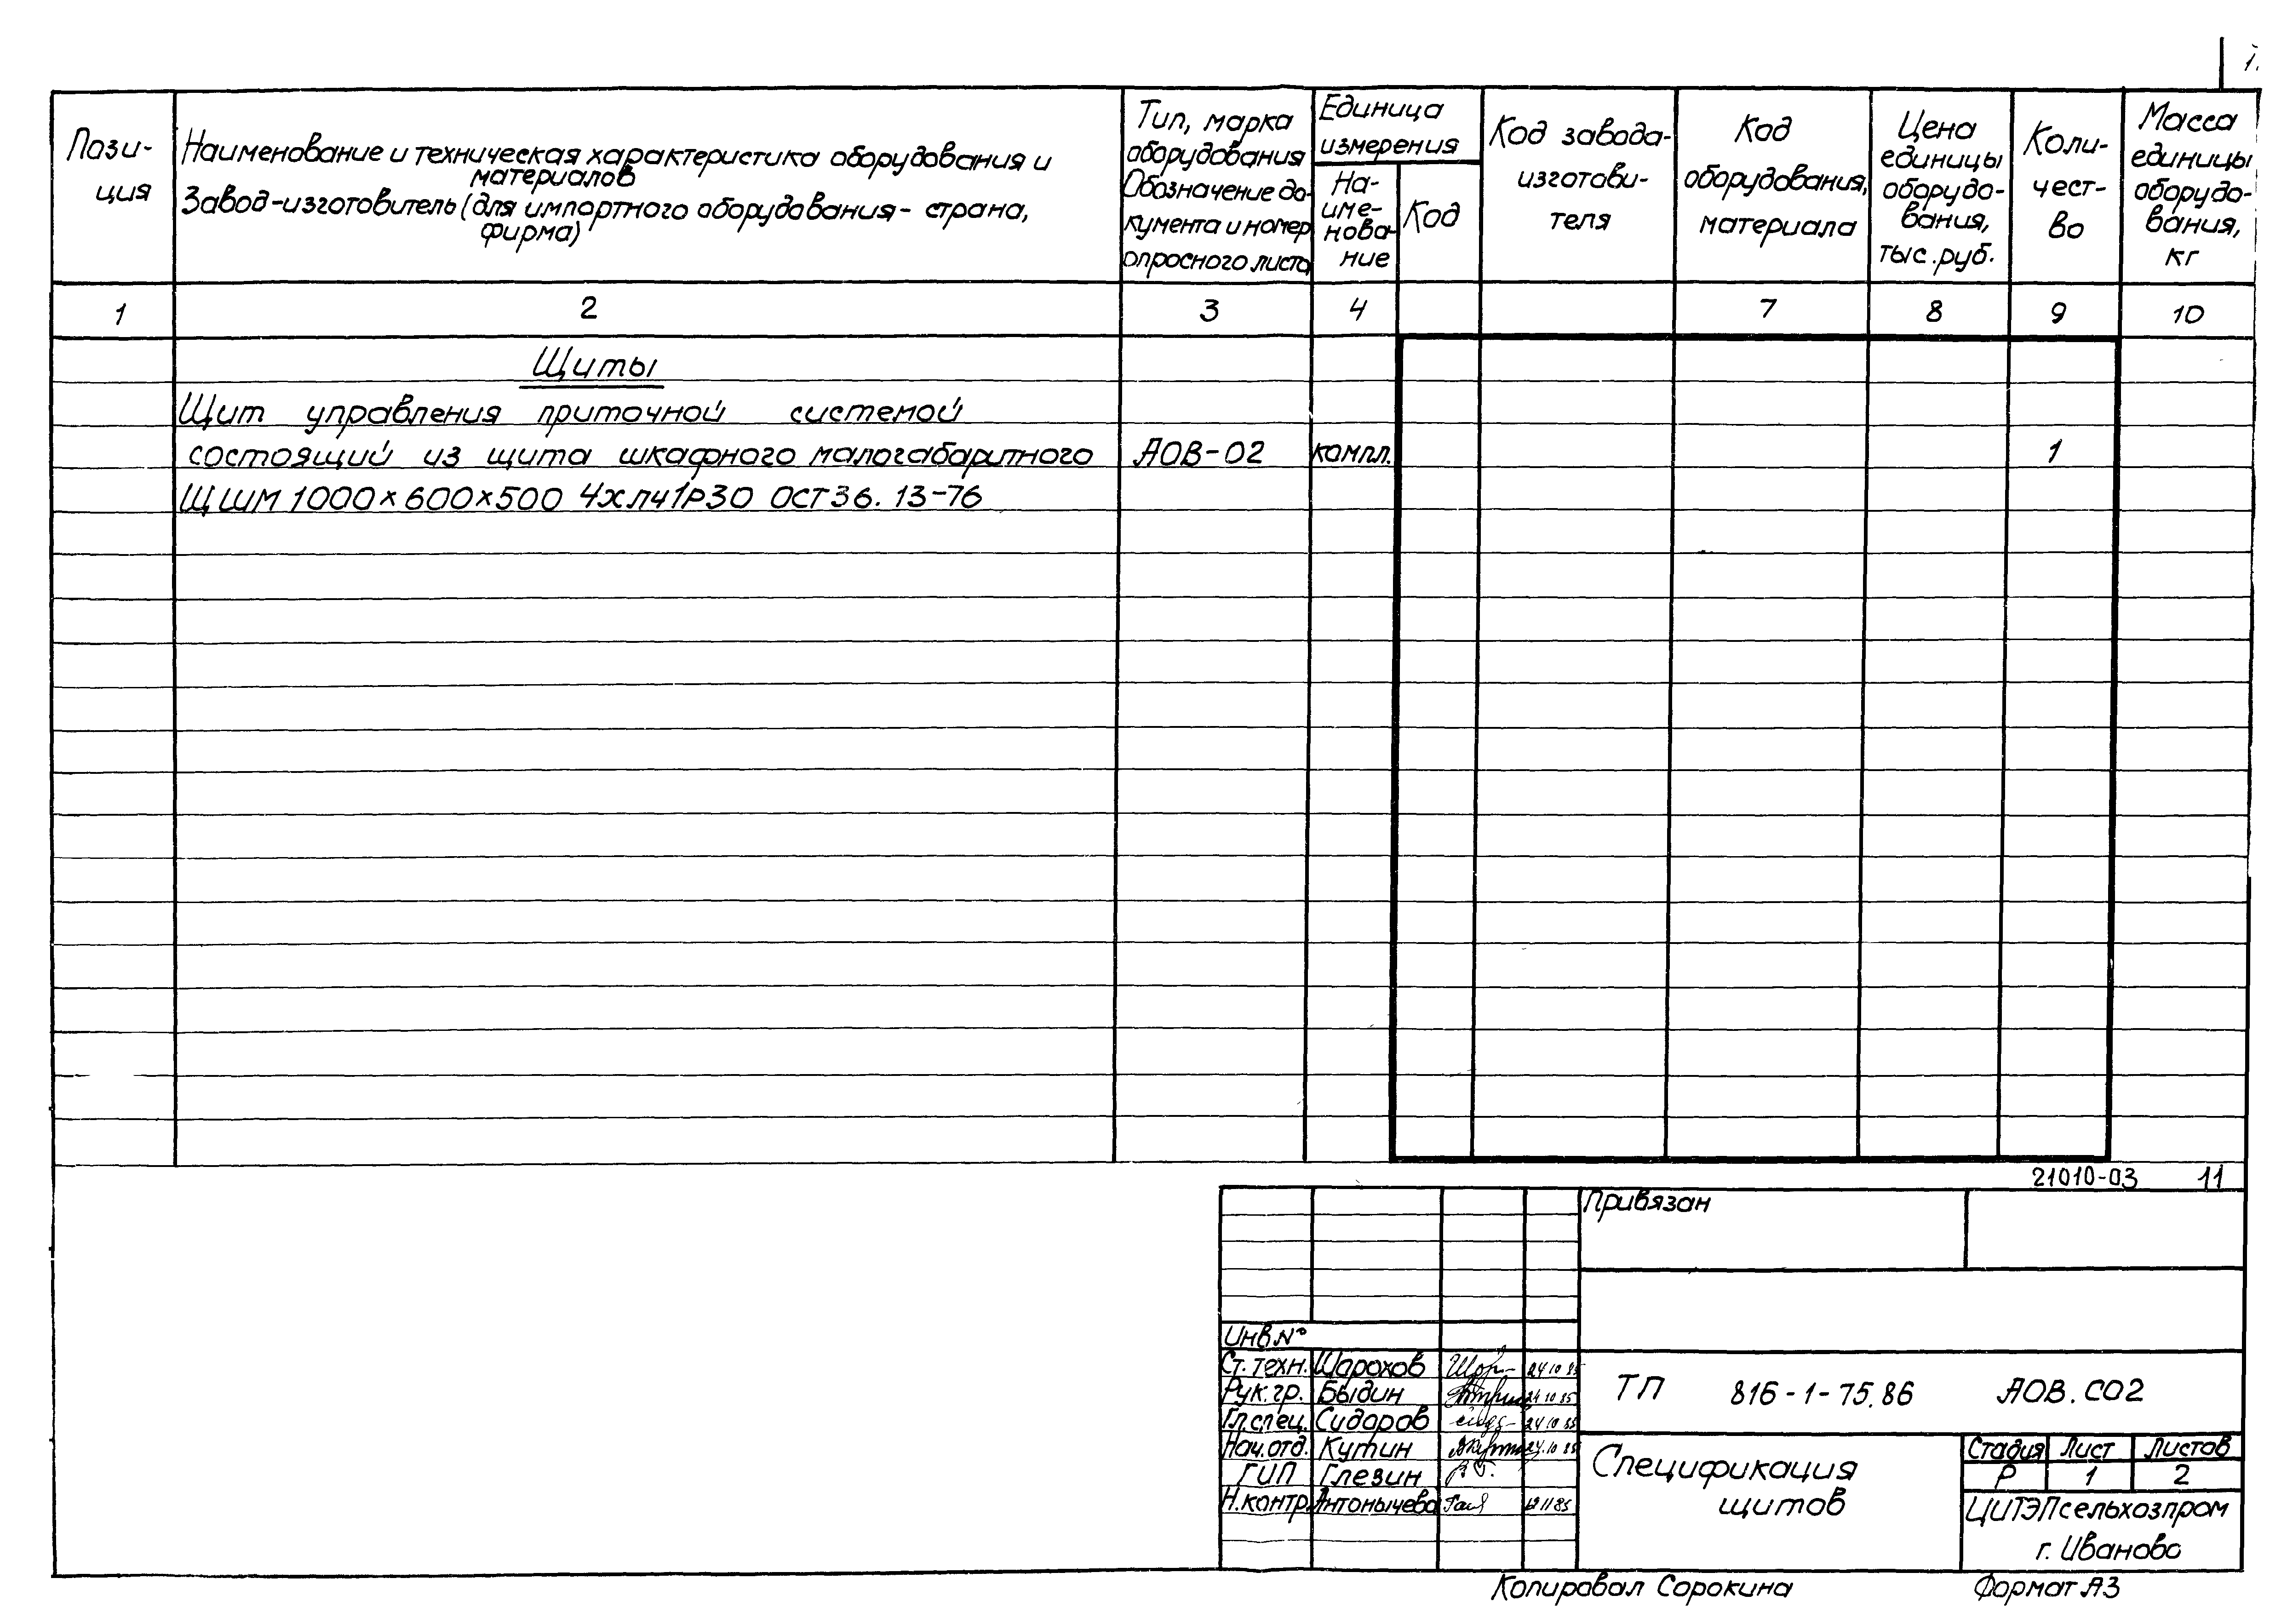 Пози-
ция
Наименование и техническая характеристика оборудования и
материалов
Завод-изготовитель (для импортного оборудования - страна,
фирма)
Тип, марка
оборудования
Обозначение до-
кумента и номер
опросного листа
Единица
измерения
На-
име-
нова-
ние
Код
Код завода-
изготови-
теля
Код
оборудования,
материала
Цена
единицы
оборудо-
вания,
тыс. руб.
Коли-
чест-
во
Масса
единицы
оборудо-
вания,
кг
1 2 3 4 7 8 9 10
Щиты
Щит управления приточной системой
состоящий из щита шкафного малогабаритного АОВ-02 компл. 1
ЩШМ 1000×600×500 4хлч1Р30 ОСТ36. 13-76
21010-03 11
Привязан
Инв.№
Ст. техн. Шорохов 24 10 85
Рук. гр. Быдин 24 10 85
Гл.спец. Сидоров 24 10 85
Нач.отд. Кутин 24.10 85
ГИП Глезин
Н.контр. Антонычева 19 11 85
ТП 816-1-75.86 АОВ.СО2
Спецификация
щитов
Стадия Лист Листов
Р 1 2
ЦИТЭПсельхозпром
г. Иваново
Копировал Сорокина Формат А3